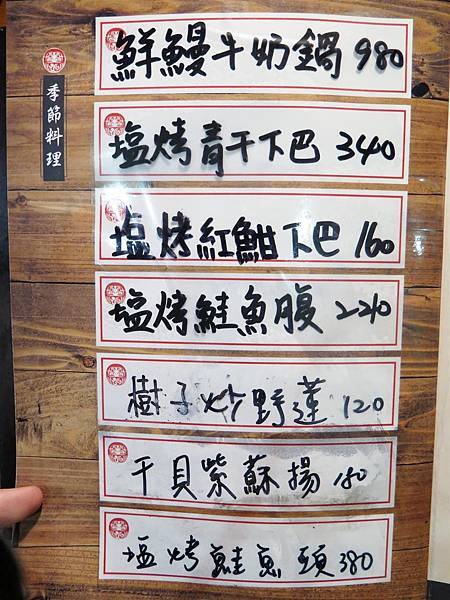 季節料理
鮮鰻牛奶鍋 980
塩烤青干下巴 340
塩烤紅魽下巴 160
塩烤鮭魚腹 220
樹子炒野蓮 120
干貝紫蘇揚 180
塩烤鮭魚頭 380